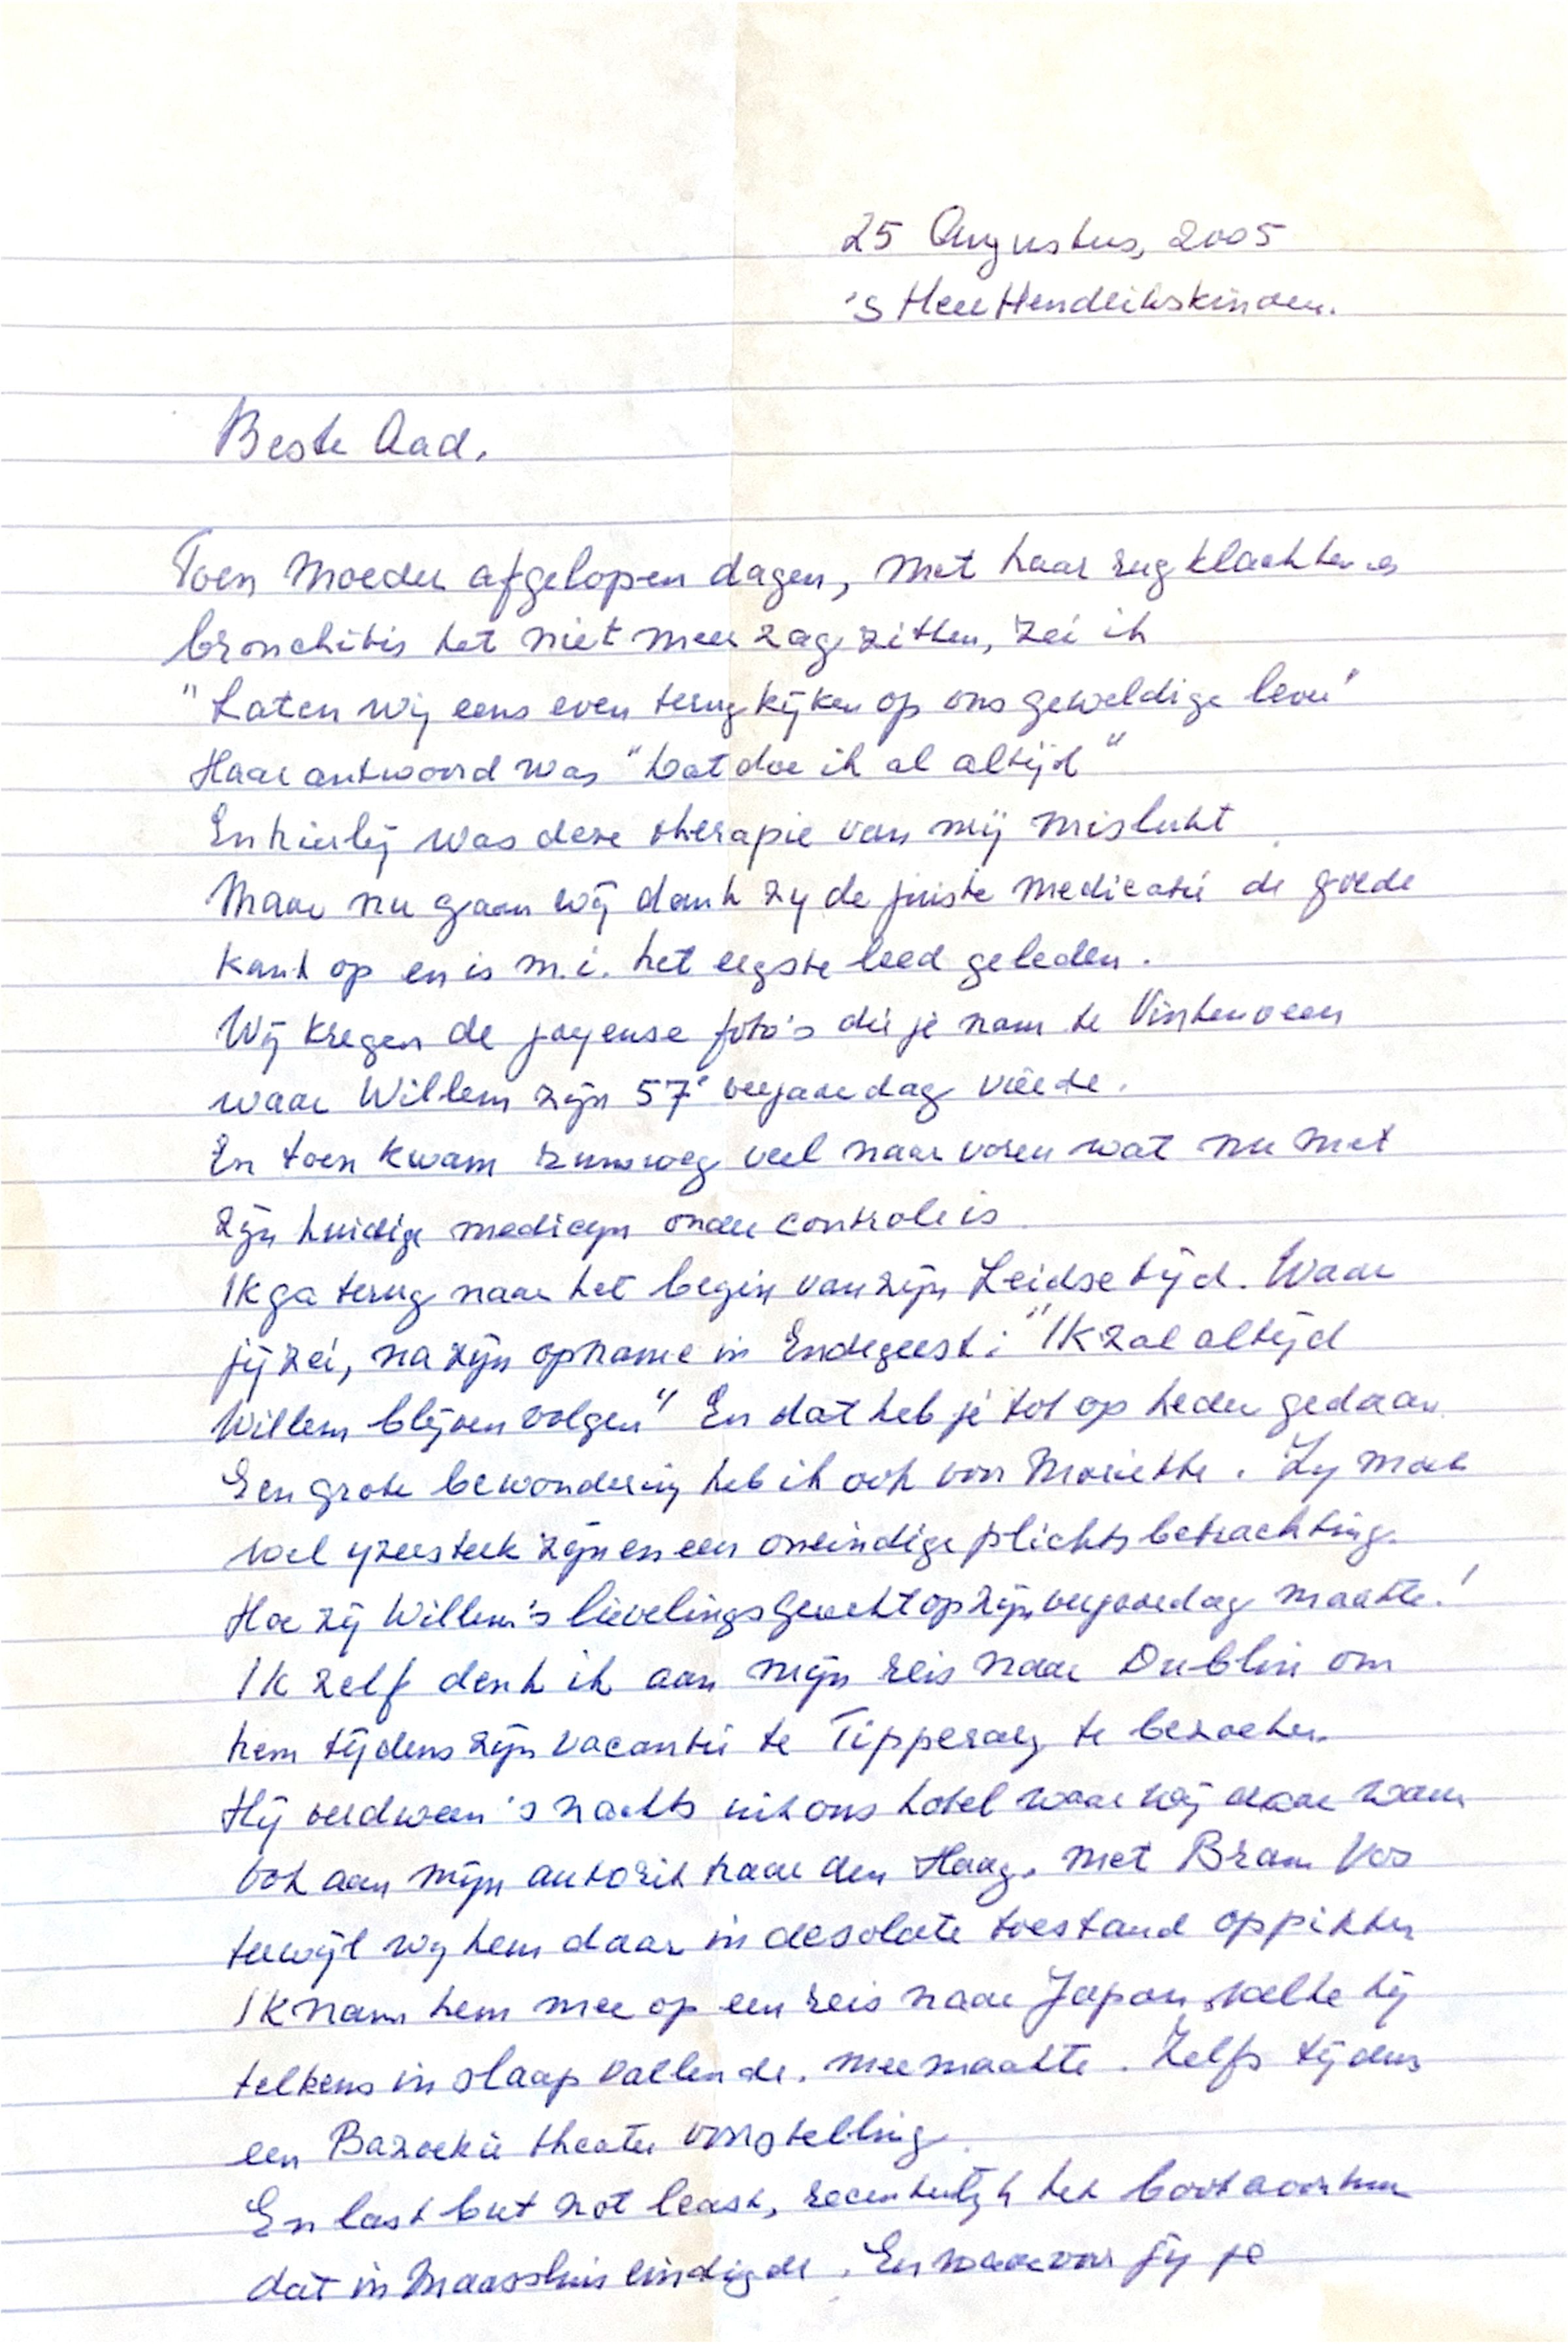 25 Augustus, 2005
's Heer Hendrikskinderen.
Beste Aad,
Toen Moeder afgelopen dagen, met haar rugklachten en
bronchitis het niet meer zag zitten, zei ik
"Laten wij eens even terugkijken op ons geweldige leven"
Haar antwoord was "Dat doe ik al altijd"
En hierbij was deze therapie van mij mislukt
Maar nu gaan wij dank zij de juiste medicatie de goede
kant op en is m.i. het ergste leed geleden.
Wij kregen de joyeuse foto's die je nam te Vinkeveen
waar Willem zijn 57e verjaardag vierde.
En toen kwam veel naar voren wat nu met
zijn huidige medicijn onder controle is
Ik ga terug naar het begin van zijn Leidse tijd. Waar
jij zei, na zijn opname in Endegeest: "Ik zal altijd
Willem blijven volgen" En dat heb je tot op heden gedaan
Een grote bewondering heb ik ook voor Mariette. Zij moet
wel ijzersterk zijn en een oneindige plichtsbetrachting.
Hoe zij Willem's lievelingsgerecht op zijn verjaardag maakte!
Ik zelf denk ik aan mijn reis naar Dublin om
hem tijdens zijn vacantie te Tipperary te bezoeken.
Hij verdween 's nachts uit ons hotel waar wij waren
Ook aan mijn autorit naar den Haag, met Bram Vos
terwijl wij hem daar in desolate toestand oppikten
Ik nam hem mee op een reis naar Japan, welke hij
telkens in slaap vallende, meemaakte. Zelfs tijdens
een theater voorstelling.
En last but not least, recentelijk het bootavontuur
dat in Maassluis eindigde. En waarvoor jij je